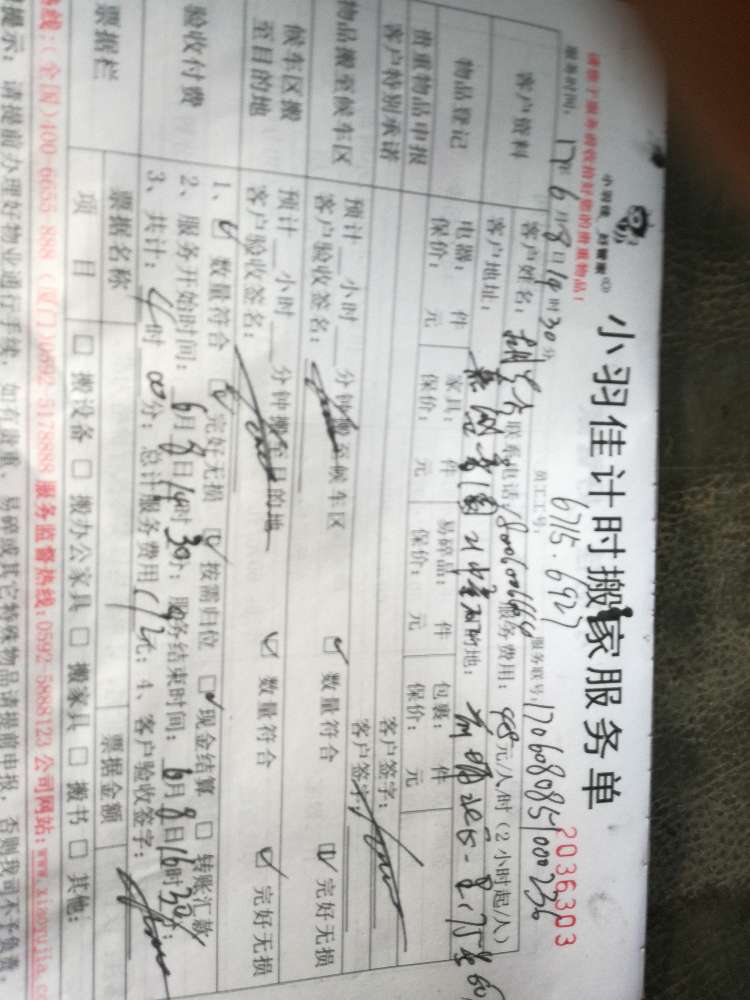 小羽佳计时搬家服务单
小羽佳
2036303
请您于服务前收拾好您的贵重物品!
员工工号: 6715.6927 服务联号: 1706080851000236
服务时间: 17年6月8日14时30分
客户资料
客户姓名: 联系电话: 服务费用: 48元/人/时(2小时起/人)
客户地址:
物品登记
电器: 件 家具: 件 易碎品: 件 包裹: 件
贵重物品申报
保价: 元 保价: 元 保价: 元 保价: 元
客户特别承诺
客户签字:
物品搬至候车区
预计__小时__分钟搬至候车区
客户验收签名: ☑ 数量符合 ☑ 完好无损
候车区搬至目的地
预计__小时__分钟搬至目的地
客户验收签名: ☑ 数量符合 ☑ 完好无损
验收付费
1、☑ 数量符合 ☑ 完好无损 ☑ 按需归位 ☑ 现金结算 □ 转账汇款
2、服务开始时间: 6月8日14时30分; 服务结束时间: 6月8日16时30分;
3、共计: 4时00分; 总计服务费用 192元; 4、客户验收签字:
票据栏
票据名称 票据金额
项目 □ 搬设备 □ 搬办公家具 □ 搬家具 □ 搬书 □ 其他:
热线:(全国)400-6655-888 (厦门)0592-5178888 服务监督热线:0592-5888123 公司网站:www.xiaoyujia.co
提示: 请提前办理好物业通行手续, 如有贵重、易碎或其它特殊物品请提前申报, 否则我司不予负责。